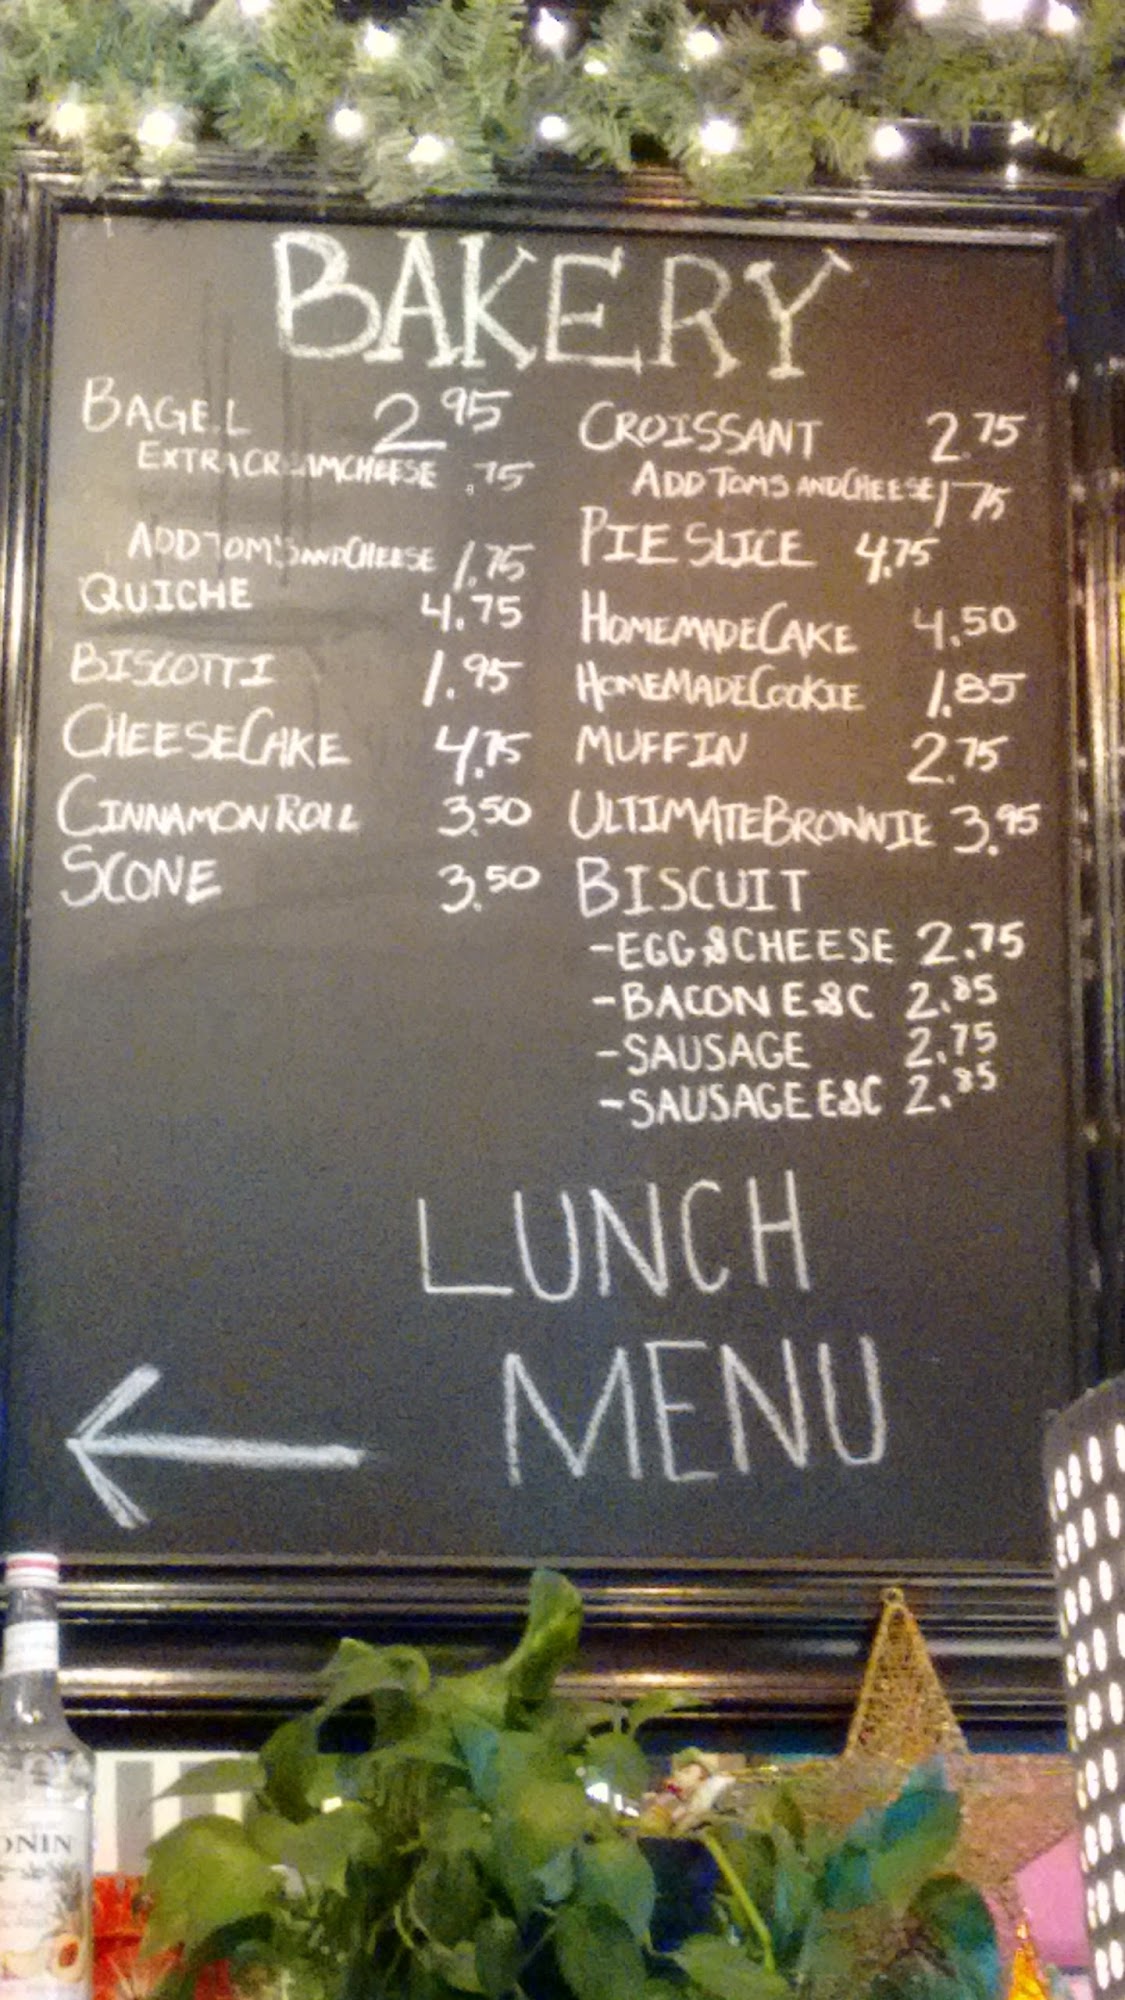 BAKERY
BAGEL 2.95
EXTRA CREAM CHEESE .75
ADD TOM'S AND CHEESE 1.75
QUICHE 4.75
BISCOTTI 1.95
CHEESE CAKE 4.75
CINNAMON ROLL 3.50
SCONE 3.50
CROISSANT 2.75
ADD TOMS AND CHEESE 1.75
PIE SLICE 4.75
HOMEMADE CAKE 4.50
HOMEMADE COOKIE 1.85
MUFFIN 2.75
ULTIMATE BROWNIE 3.95
BISCUIT
-EGG & CHEESE 2.75
-BACON E&C 2.85
-SAUSAGE 2.75
-SAUSAGE E&C 2.85
LUNCH
MENU
ONIN